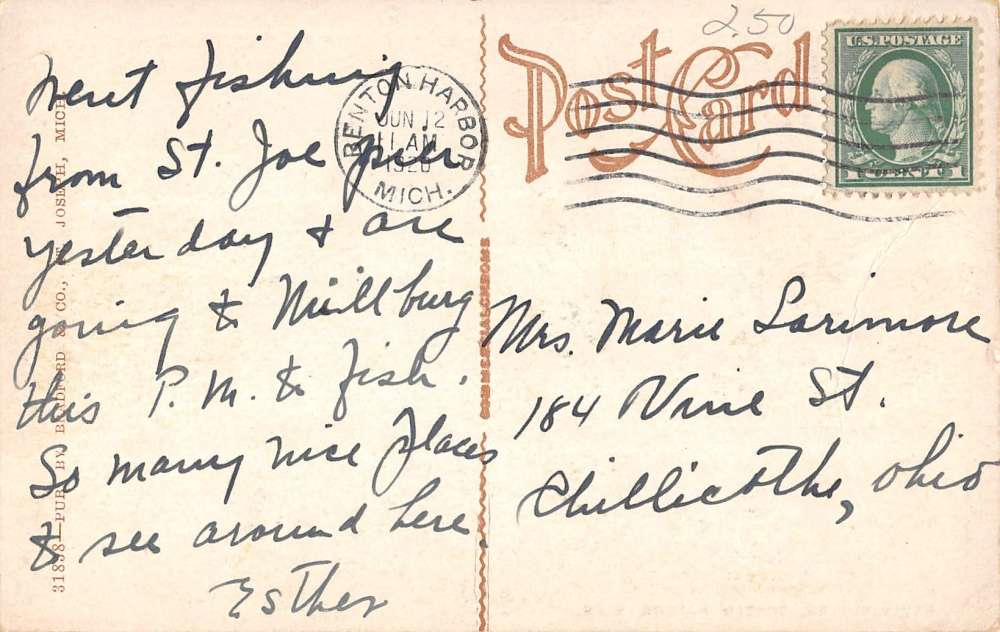 2.50
Post Card
U.S. POSTAGE
1 CENT 1
BENTON HARBOR
JUN 12
11 AM
1920
MICH.
Went fishing
from St. Joe pier
yesterday & are
going to Millburg
this P.M. to fish.
So many nice places
to see around here.
Esther
Mrs. Marie Larimore
184 Vine St.
Chillicothe, Ohio
31898—PUB. BY BRADFORD & CO., ST. JOSEPH, MICH.
COMMERCIALCHROME